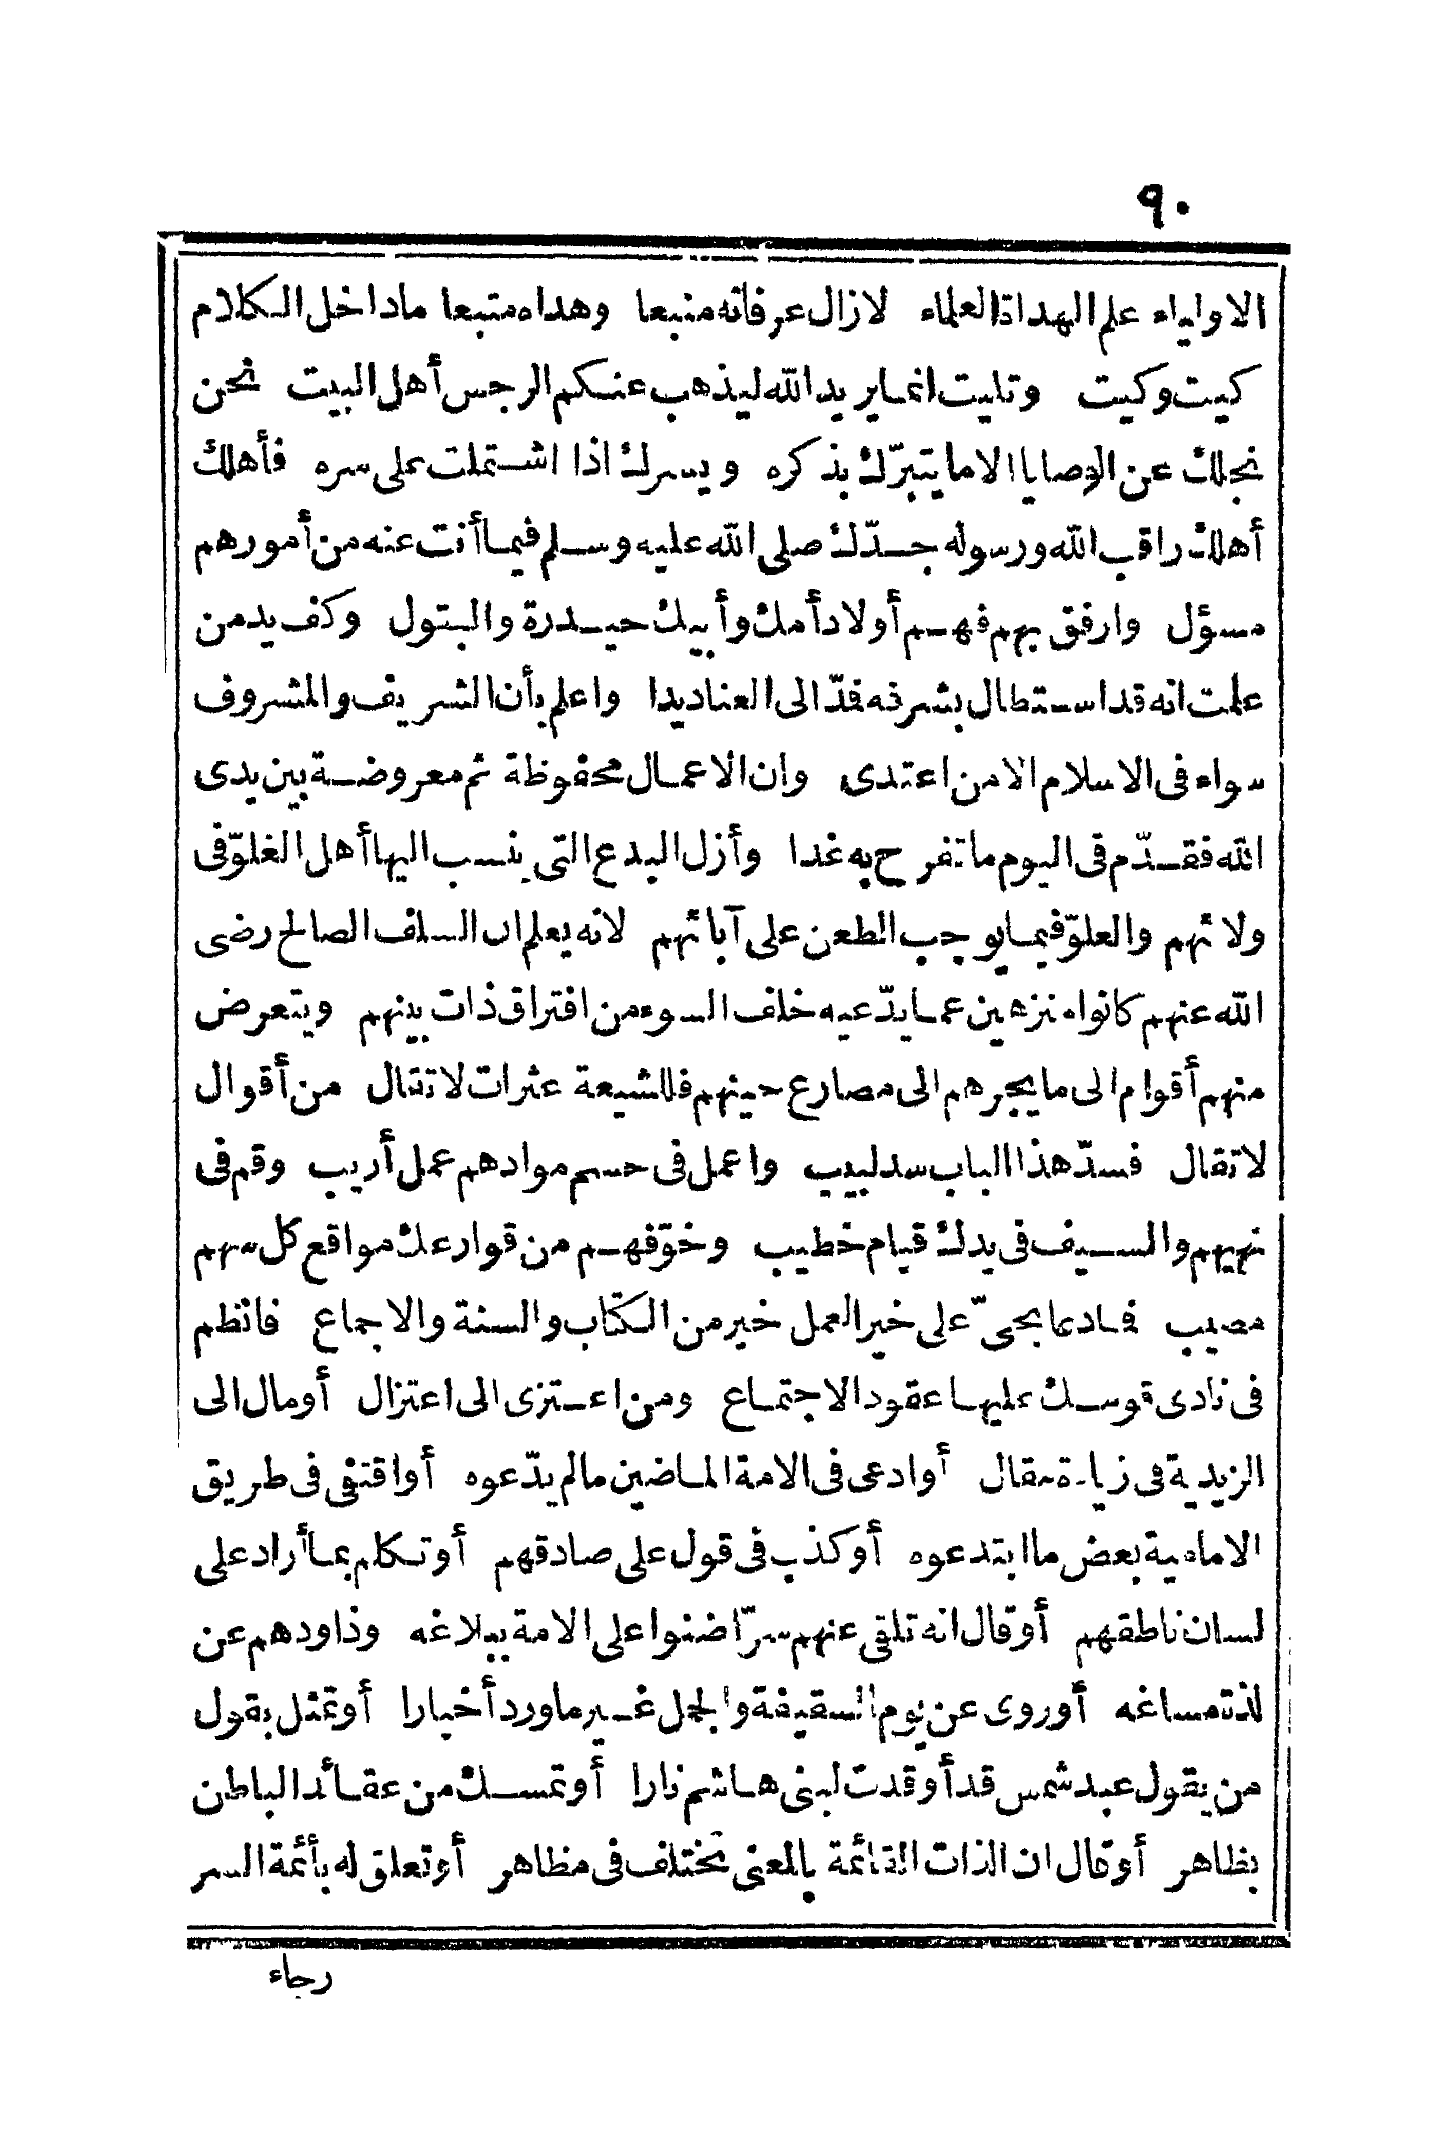 ٩٠
الاولياء علم الهداة العلماء لازال عرفانه منبعا وهداه متبعا مادا خل الكلام
كيت وكيت وتليت انما يريد الله ليذهب عنكم الرجس أهل البيت نحن
نجلك عن الوصايا الا ما يتبرّك بذكره ويسرك اذا اشتملت على سره فأهلك
أهلك راقب الله ورسوله جدّك صلى الله عليه وسلم فيما أنت عنه من أمورهم
مسؤل وارفق بهم فهم أولاد أمك وأبيك حيدرة والبتول وكف يد من
علمت انه قد استطال بشرفه فدّ الى العناد يدا واعلم بأن الشريف والمشروف
سواء فى الاسلام الا من اعتدى وان الاعمال محفوظة ثم معروضة بين يدى
الله فقدّم فى اليوم ما تفرح به غدا وأزل البدع التى ينسب اليها أهل الغلوّ فى
ولائهم والعلوّ فيما يوجب الطعن على آبائهم لانه يعلم ان السلف الصالح رضى
الله عنهم كانوا منزهين عما يدّعيه خلف السوء من افتراق ذات بينهم ويتعرض
منهم أقوام الى ما يجرهم الى مصارع حينهم فللشيعة عثرات لا تقال من أقوال
لا تقال فسدّ هذا الباب سد لبيب واعمل فى حسم موادهم عمل أريب وقم فى
نهيهم والسيف فى يدك قيام خطيب وخوّفهم من قوارعك مواقع كل سهم
مصيب فما دعا بحىّ على خير العمل خير من الكتاب والسنة والاجماع فانظم
فى نادى قومك عليها عقود الاجتماع ومن اعتزى الى اعتزال أو مال الى
الزيدية فى زيادة مقال أو ادعى فى الامة الماضين مالم يدّعوه أو اقتفى فى طريق
الامامية بعض ما ابتدعوه أو كذب فى قول على صادقهم أو تكلم بما أراد على
لسان ناطقهم أو قال انه تلقى عنهم سرّا ضنوا على الامة ببلاغه وذاودهم عن
لذة مساغه أو روى عن يوم السقيفة والجمل غير ما ورد أخبارا أو تمثل بقول
من يقول عبد شمس قد أوقدت لبنى هاشم نارا أو تمسك من عقائد الباطن
بظاهر أو قال ان الذات القائمة بالمعنى تختلف فى مظاهر أو تعلق له بأئمة السر
رجاء